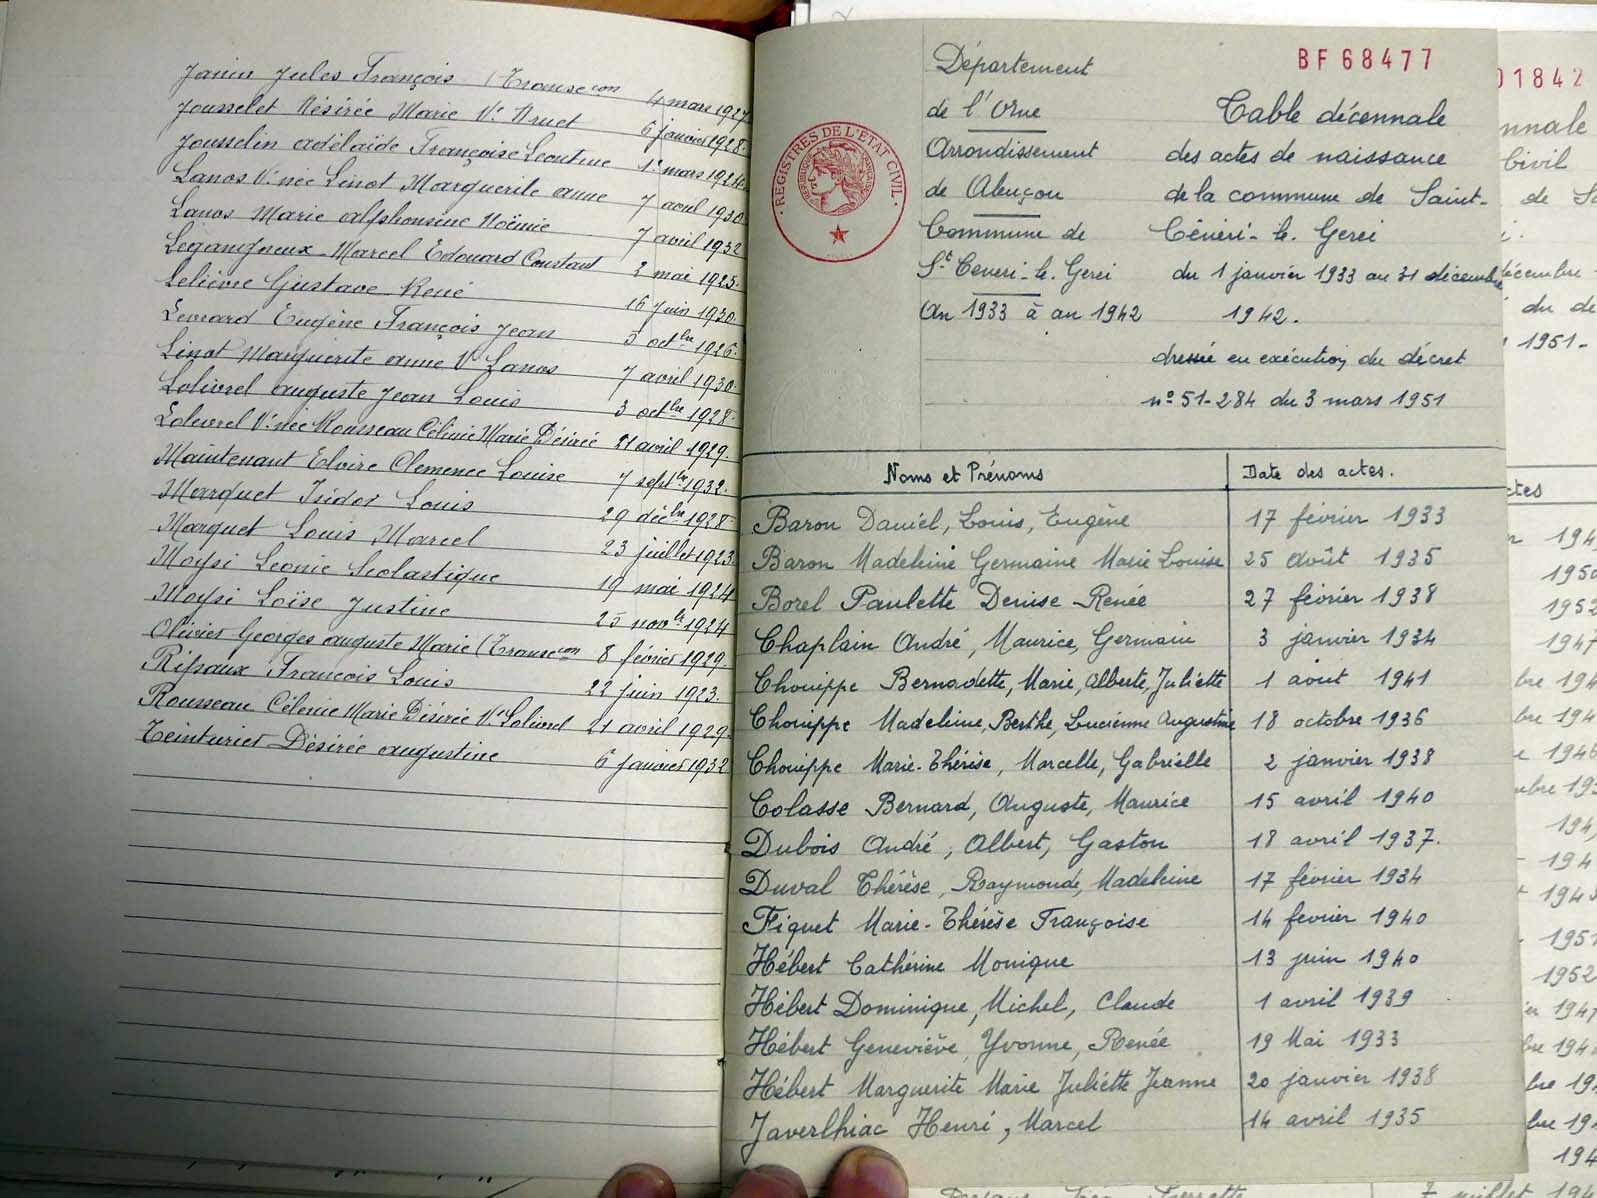 Janin Jules François (Transc.on 4 mars 1927
Jousselet Désirée Marie Ve Druet 6 janvier 1928.
Jousselin Adélaïde Françoise Léontine 1er mars 1924.
Lanos Ve née Linot Marguerite Anne 7 avril 1930.
Lanos Marie Alphonsine Noëmie 7 avril 1932
Leganigneux Marcel Edouard Constant 2 mai 1925.
Lelièvre Gustave René 16 juin 1930.
Levrard Eugène François Jean 5 octbre 1926.
Linot Marguerite Anne Ve Lanos 7 avril 1930
Lolivrel Auguste Jean Louis 3 octbre 1928.
Lolivrel Ve née Rousseau Célinie Marie Désirée 21 avril 1929.
Maintenant Elvire Clemence Louise 7 septbre 1932.
Marquet Isidor Louis 29 décbre 1928
Marquet Louis Marcel 23 juillet 1923.
Moysi Leonie Scolastique 19 mai 1924
Moysi Loïse Justine 25 novbre 1924
Olivier Georges Auguste Marie (Transc.on 8 février 1929
François Louis 22 juin 1923.
Rousseau Célinie Marie Désirée Ve Lolivrel 21 avril 1929.
Teinturier Désirée Augustine 6 janvier 1932
Département
de l'Orne
Arrondissement
de Alençon
Commune de
St Ceneri-le-Gerei
An 1933 à an 1942
REGISTRES DE L'ETAT CIVIL
BF 68477
Table décennale
des actes de naissance
de la commune de Saint-
Céneri-le-Gerei
du 1 janvier 1933 au 31 décembre
1942.
dressée en exécution du décret
n° 51-284 du 3 mars 1951
Noms et Prénoms Date des actes.
Baron Daniel, Louis, Eugène 17 février 1933
Baron Madeleine Germaine Marie Louise 25 août 1935
Borel Paulette Denise Renée 27 février 1938
Chaplain André, Maurice, Germain 3 janvier 1934
Chouippe Bernadette, Marie, Alberte, Juliette 1 août 1941
Chouippe Madeleine, Berthe, Lucienne Augustine 18 octobre 1936
Chouippe Marie-Thérèse, Marcelle, Gabrielle 2 janvier 1938
Colasse Bernard, Auguste, Maurice 15 avril 1940
Dubois André, Albert, Gaston 18 avril 1937.
Duval Thérèse, Raymonde, Madeleine 17 février 1934
Fiquet Marie-Thérèse Françoise 14 fevrier 1940
Hébert Cathérine Monique 13 juin 1940
Hébert Dominique, Michel, Claude 1 avril 1939
Hébert Geneviève, Yvonne, Renée 19 Mai 1933
Hébert Marguerite Marie Juliette Jeanne 20 janvier 1938
Javerlhiac Henri, Marcel 14 avril 1935
01842
nnale
civil
de
écembre
du de
1951-
ctes
1950
1952
1947
1946
1951
1952
7 juillet 194